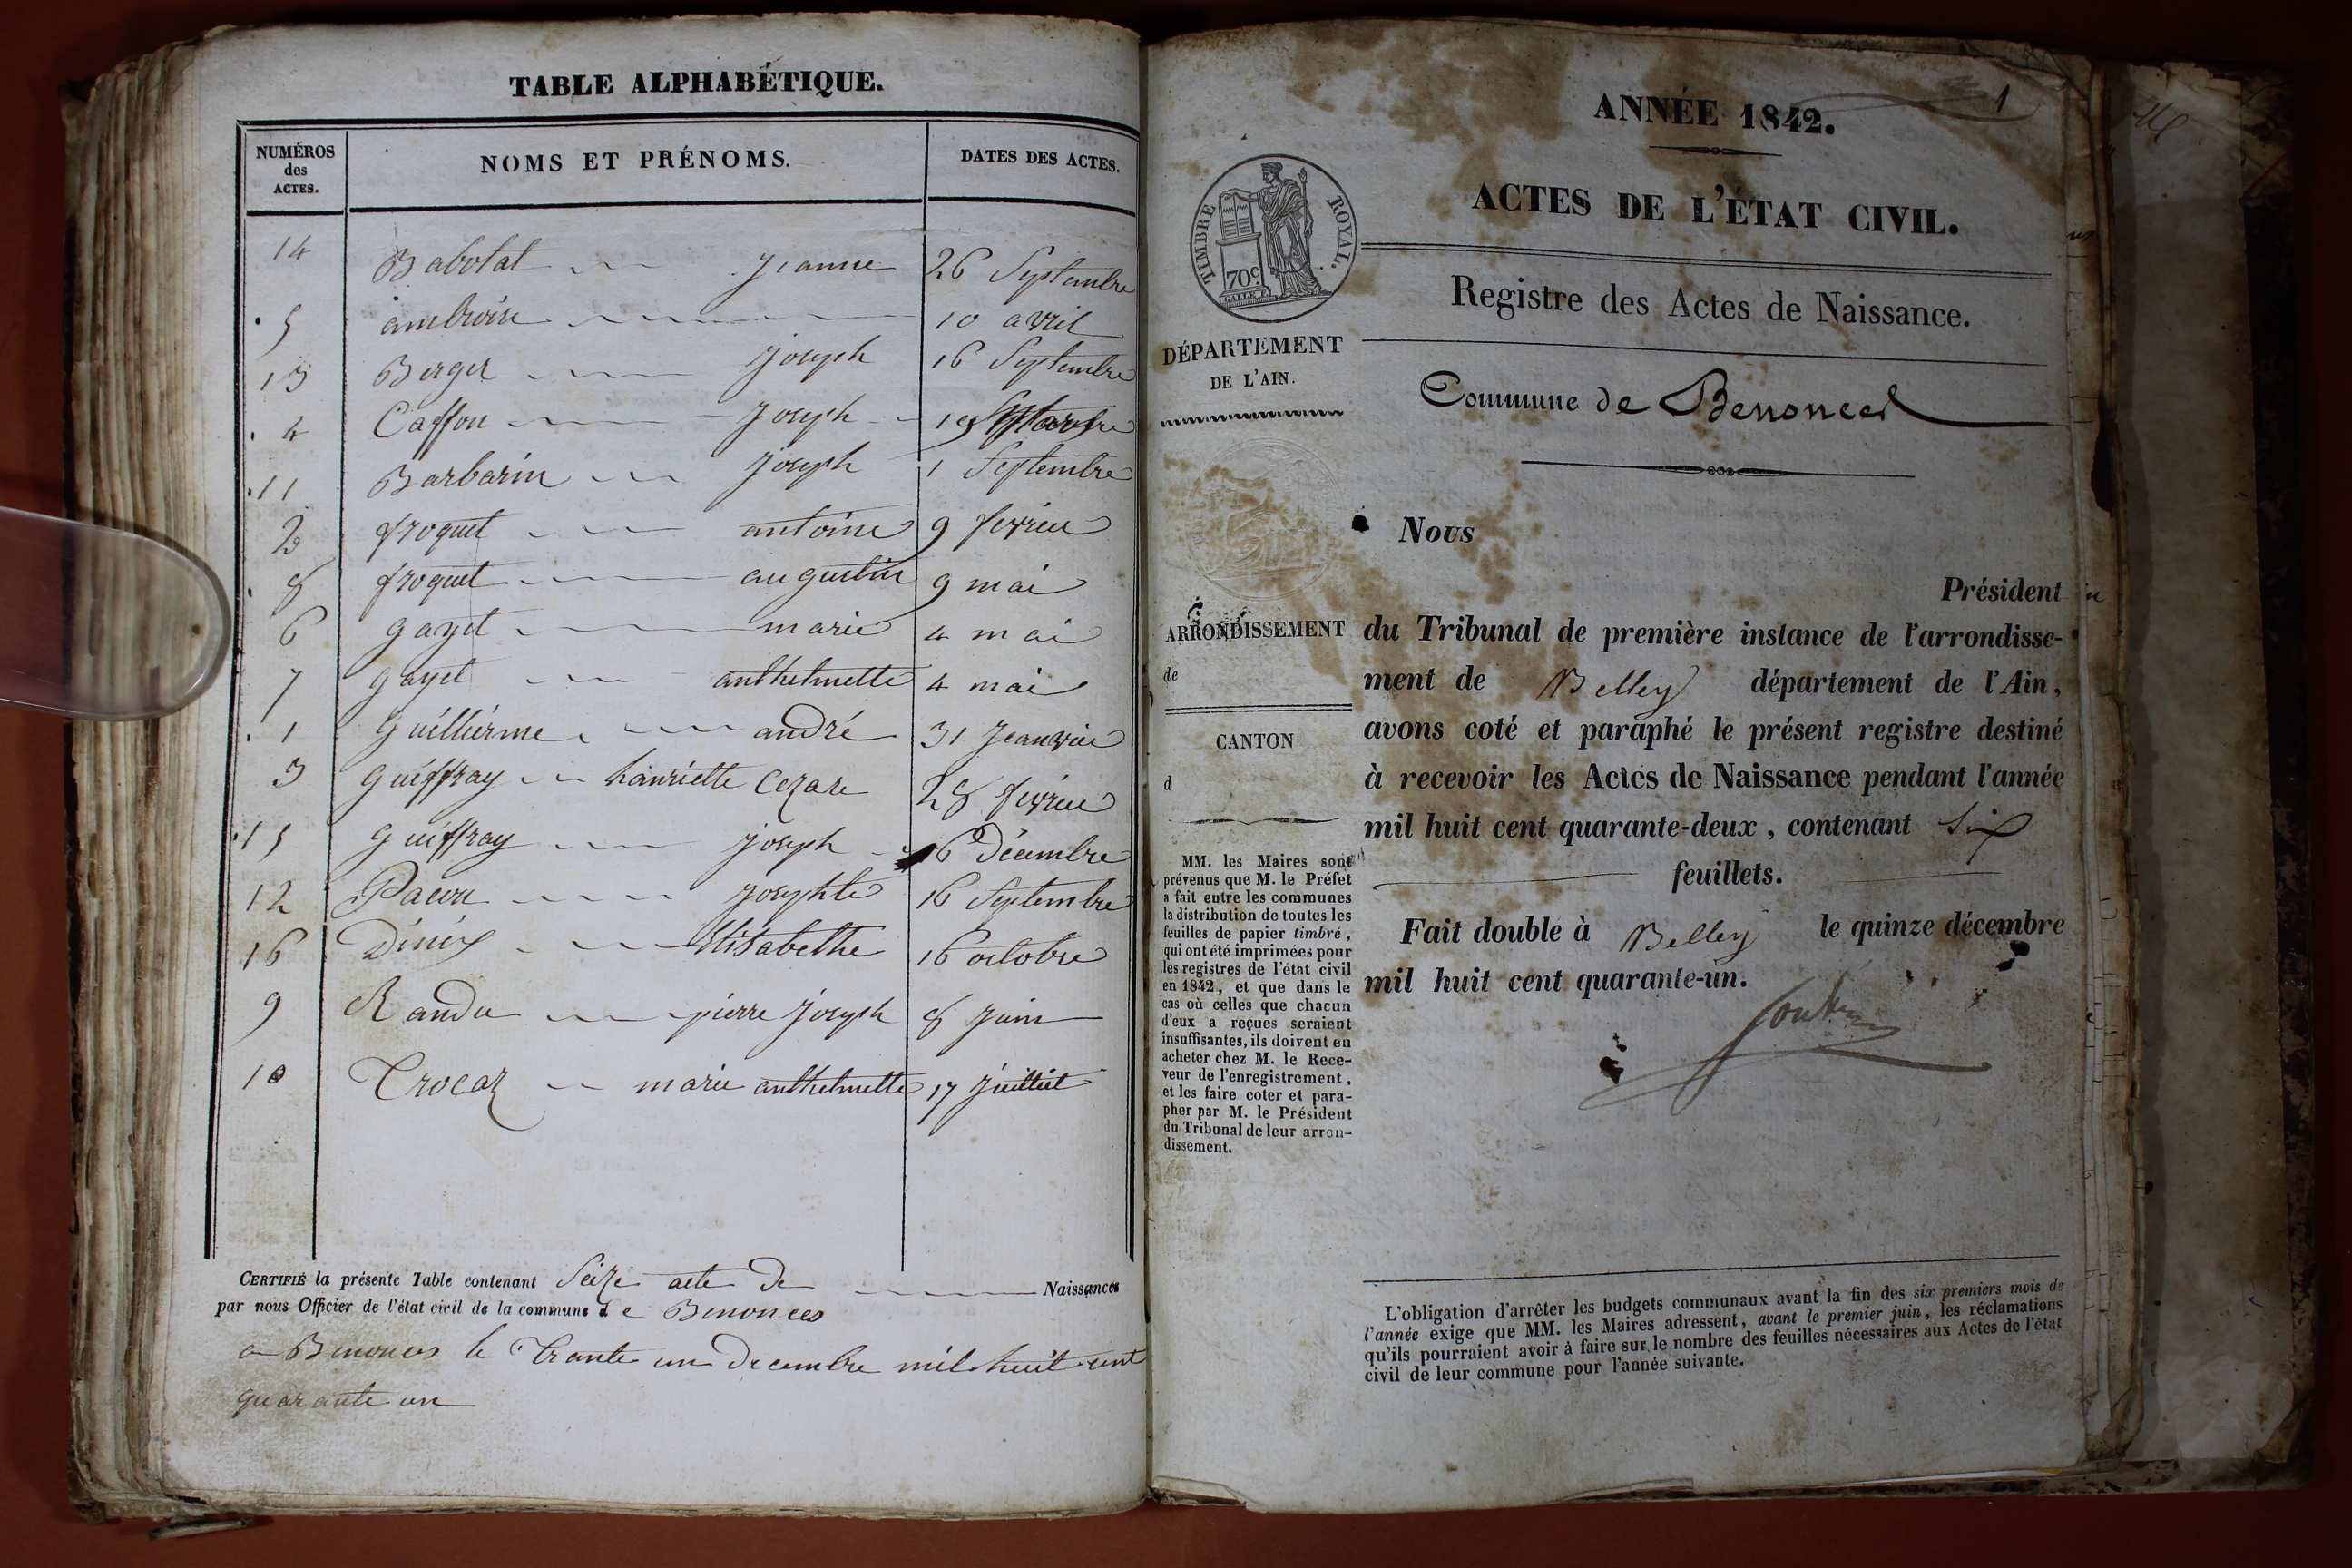 TABLE ALPHABÉTIQUE.
NUMÉROS des ACTES. NOMS ET PRÉNOMS. DATES DES ACTES.
14 Babolat Jeanne 26 Septembre
5 ambroise 10 avril
13 Berger Joseph 16 Septembre
4 Caffon Joseph 19
11 Barbarin Joseph 1 Septembre
2 froquet antoine 9 fevrier
8 froquet augustin 9 mai
6 gayet marie 4 mai
7 gayet anthelmette 4 mai
1 Guillierme andré 31 Jeanvier
3 guiffray hanriette Cezare 28 fevrier
15 guiffray joseph 16 Décembre
12 Pacou josephte 16 Septembre
16 Elisabethe 16 octobre
9 Randu pierre Joseph 8 Juin
10 Trocaz marie anthelmette 17 Juilliet
CERTIFIÉ la présente Table contenant Seize acte de Naissances
par nous Officier de l'état civil de la commune d e Benonces
a Benonces le Trante un Decembre mil huit cent
quarante un
1
ANNÉE 1842.
ACTES DE L'ÉTAT CIVIL.
TIMBRE ROYAL.
70c
Registre des Actes de Naissance.
DÉPARTEMENT
DE L'AIN.
Commune de Benonces
Nous
Président
ARRONDISSEMENT
de
CANTON
d
du Tribunal de première instance de l'arrondisse-
ment de Belley département de l'Ain,
avons coté et paraphé le présent registre destiné
à recevoir les Actes de Naissance pendant l'année
mil huit cent quarante-deux, contenant Six
feuillets.
Fait double à Belley le quinze décembre
mil huit cent quarante-un.
MM. les Maires sont
prévenus que M. le Préfet
a fait entre les communes
la distribution de toutes les
feuilles de papier timbré,
qui ont été imprimées pour
les registres de l'état civil
en 1842, et que dans le
cas où celles que chacun
d'eux a reçues seraient
insuffisantes, ils doivent en
acheter chez M. le Rece-
veur de l'enregistrement,
et les faire coter et para-
pher par M. le Président
du Tribunal de leur arron-
dissement.
L'obligation d'arrêter les budgets communaux avant la fin des six premiers mois de
l'année exige que MM. les Maires adressent, avant le premier juin, les réclamations
qu'ils pourraient avoir à faire sur le nombre des feuilles nécessaires aux Actes de l'état
civil de leur commune pour l'année suivante.